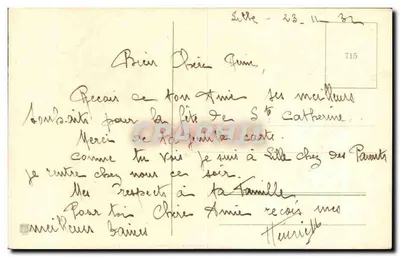 Lille - 23.11.32
715
Bien Chère Amie,
Recois de ton Amie ses meilleurs
Souhaits pour la fête de Ste Catherine..
Merci de ta jolie carte.
Comme tu vois je suis à Lille chez des Parents
je rentre chez nous ce soir.
Mes respects à ta Famille
Pour toi Chère Amie recois mes
meilleurs baisers